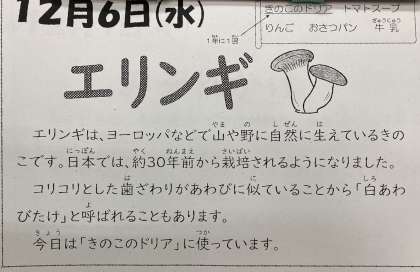 12月6日(水)
きのこのドリア トマトスープ
1年に1回
りんご おさつパン 牛乳
ぎゅうにゅう
エリンギ
エリンギは、ヨーロッパなどで山や野に自然に生えているきの
こです。日本では、約30年前から栽培されるようになりました。
コリコリとした歯ざわりがあわびに似ていることから「白あわ
びたけ」と呼ばれることもあります。
今日は「きのこのドリア」に使っています。